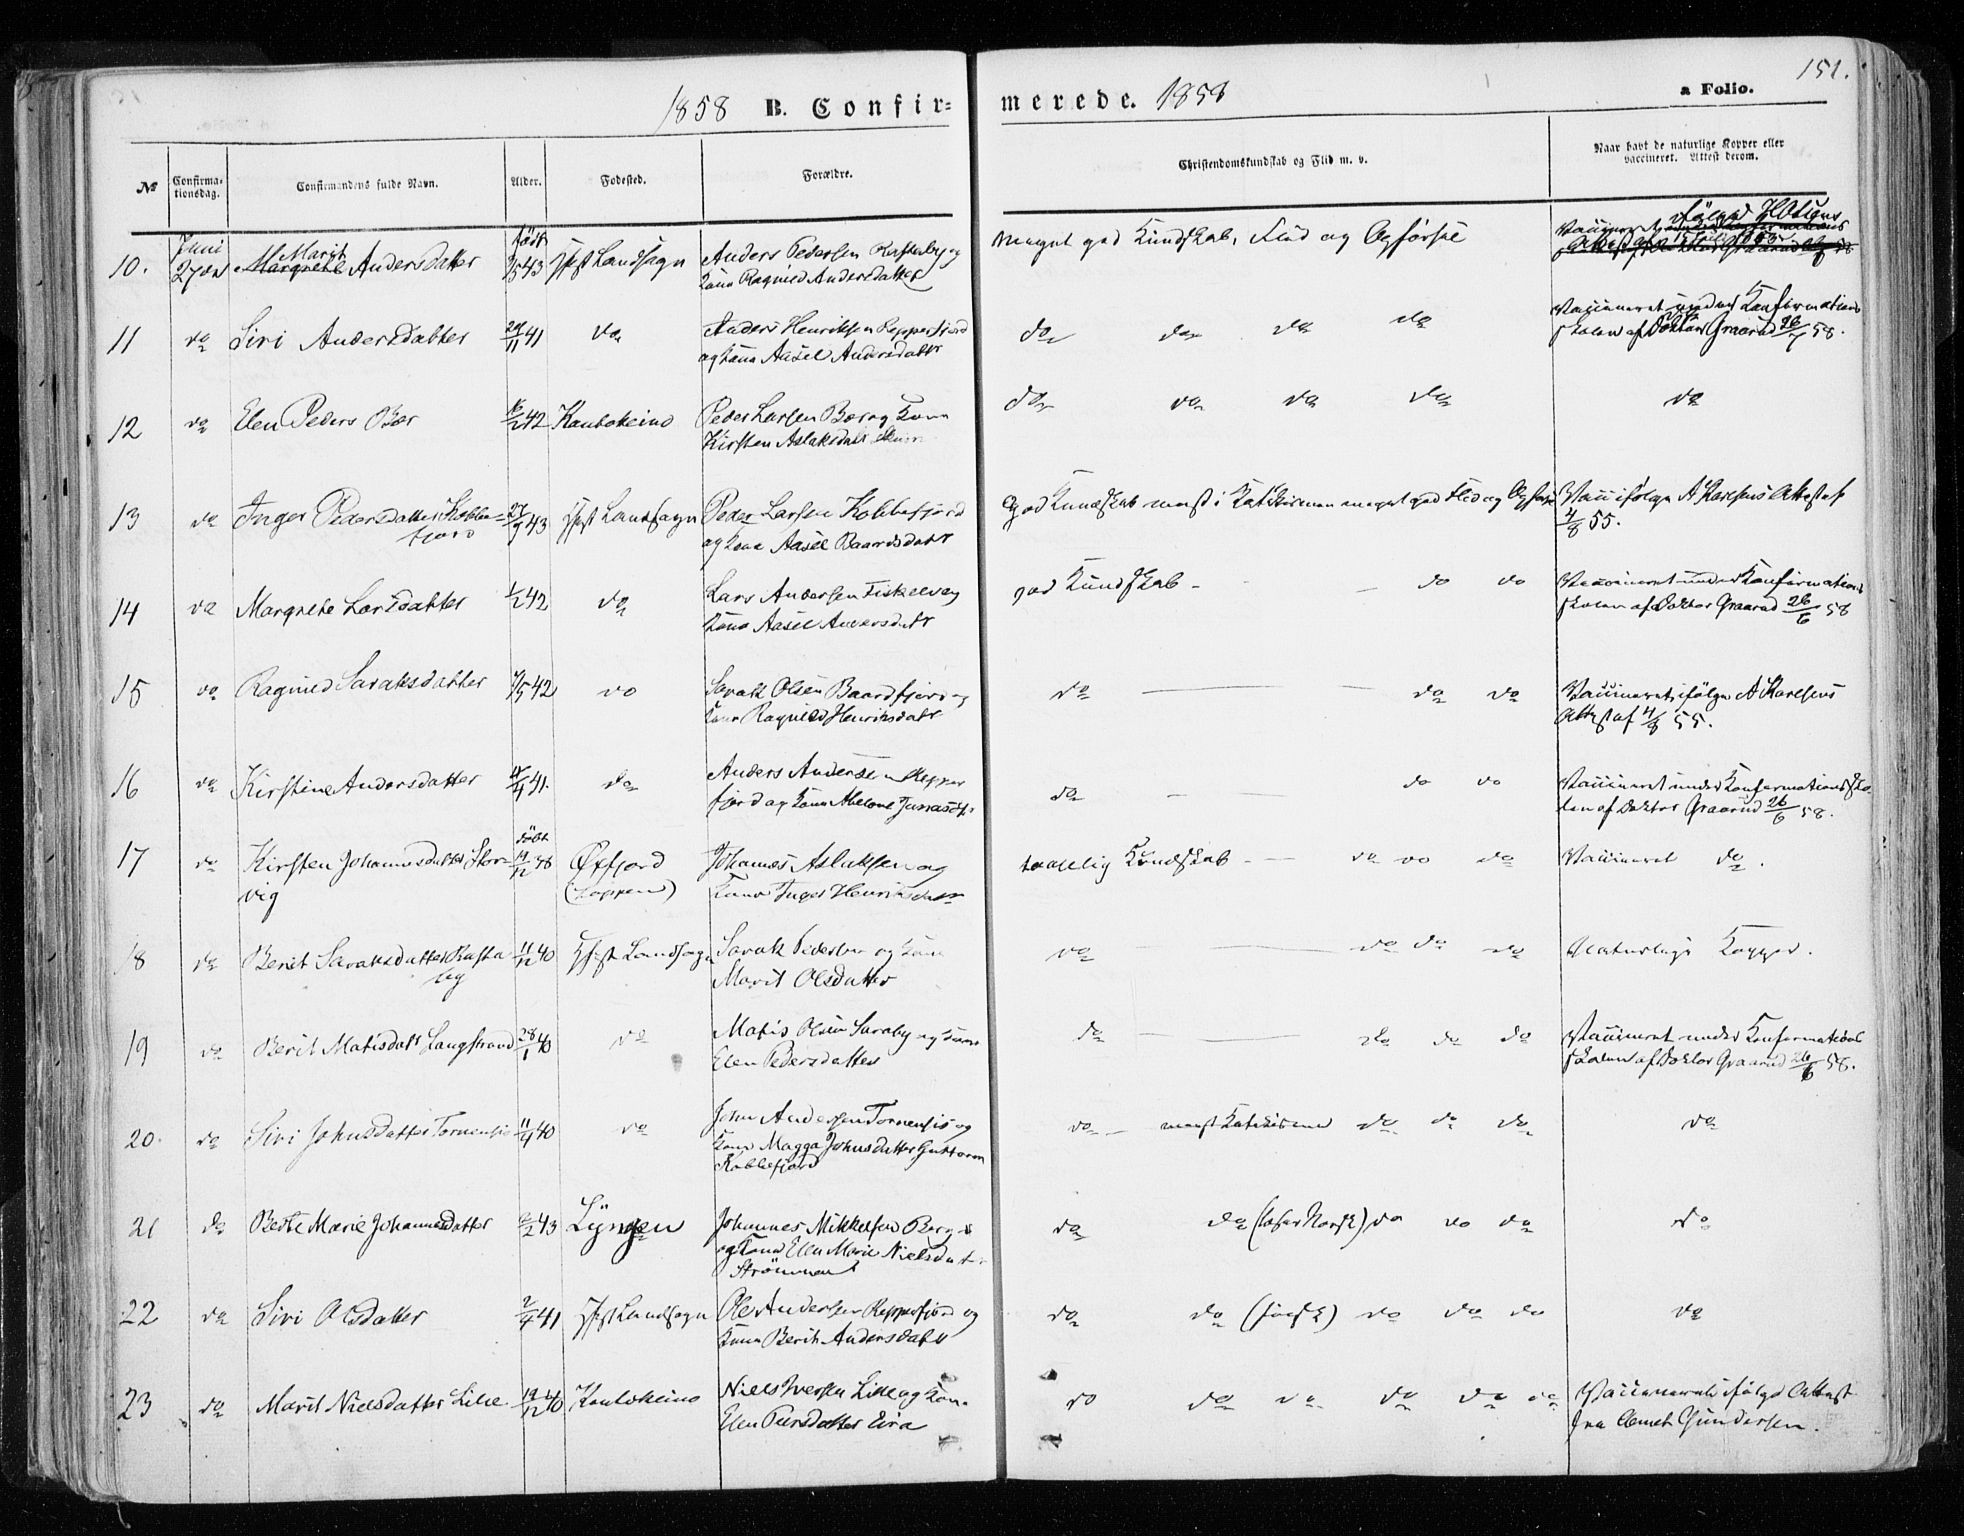 151.
1858 B. Confir=
merede. 1858
a Folio.
№
Confirma-
tionsdag.
Confirmandens fulde Navn.
Alder.
Fødested.
Forældre.
Christendomskundskab og Flid m. v.
Naar havt de naturlige Kopper eller
vaccineret. Attest derom.
10. Juni 27de Marit
Margrethe Andersdatter født 43 Landsogn Anders Pedersen og
Kone Ragnild Andersdatter
meget god Kundskab, Flid og Opførsel
11 do Siri Andersdatter 29/11 41 do Anders Henriksen Repperfjord
og Kone Aasel Andersdatr
do do do do
Vaccineret under Konfirmations
skolen af Doktor Graarud 26/6 58.
12 do Elen Peders Bær 16/12 42 Kautokeino Peder Larsen Bær og Kone
Kirsten Aslaksdatr
do do do do
do
13 do Inger Pedersdatter Kobbe=
fjord 27/9 43 Landsogn Peder Larsen Kobbefjord
og Kone Aasel Baardsdatr
god Kundskab mest i Katekismen meget god Flid og Opførs
Vacc ifølge A Karlsens Attest af
4/8 55.
14 do Margrete Larsdatter 1/12 42 do Lars Andersen og
Kone Aasel Andersdatr
god Kundskab - - do do
Vaccineret under Konfirmations
skolen af Doktor Graarud 26/6 58
15 do Ragnild Saraksdatter 7/5 42 do Sarak Olsen Baardfjord og
Kone Ragnild Henriksdatr
do do do
Vaccineret ifølge A Karlsens
Attest af 4/8 55.
16 do Kirstine Andersdatter 41. do Anders Andersen Repper
fjord og Kone Abelone
do - - do do
Vaccineret under Konfirmationssko
len af Doktor Graarud 26/6 58.
17 do Kirsten Johannesdatter Stor=
vig døbt Øxfjord
(Loppen) Johannes Aslaksen og
Kone Inger Henriksdatr
taalelig Kundskab - - do do do
Vaccineret do.
18 do Berit Saraksdatter Rafsta
by 11/12 40 Landsogn Sarak Pedersen og Kone
Marit Olsdatter
do do do do
Naturlige Kopper.
19 do Berit Matisdatr Langstrand 28/1 40 do Matis Olsen Saraby og Kone
Elen Pedersdatter
do do do do
Vaccineret under Konfirmations
skolen af Doktor Graarud 26/6 58.
20. do Siri Johnsdatter Tornensis 11/9 40 do John Andersen Tornensis og
Kone Magga Johnsdatter Guttorm
Kobbefjord
do - mest Katekismen do do do
do
21 do Berte Marie Johannesdatter 43 Lyngen Johannes Mikkelsen Berg
og Kone Elen Marie Nielsdatr
Strømmen
do do (læser Norsk) do do do
do
22 do Siri Olsdatter 41 Landsogn Ole Andersen Repperfjord og
Kone Berit Andersdatr
do do (norsk) do do do
do
23 do Marit Nielsdatter Lille 19/12 40 Kautokeino Niels Iversen Lille og Kone
Elen Persdatter Eira
do do do do do do
Vaccineret ifølge Attest
fra Clemet Gundersen.